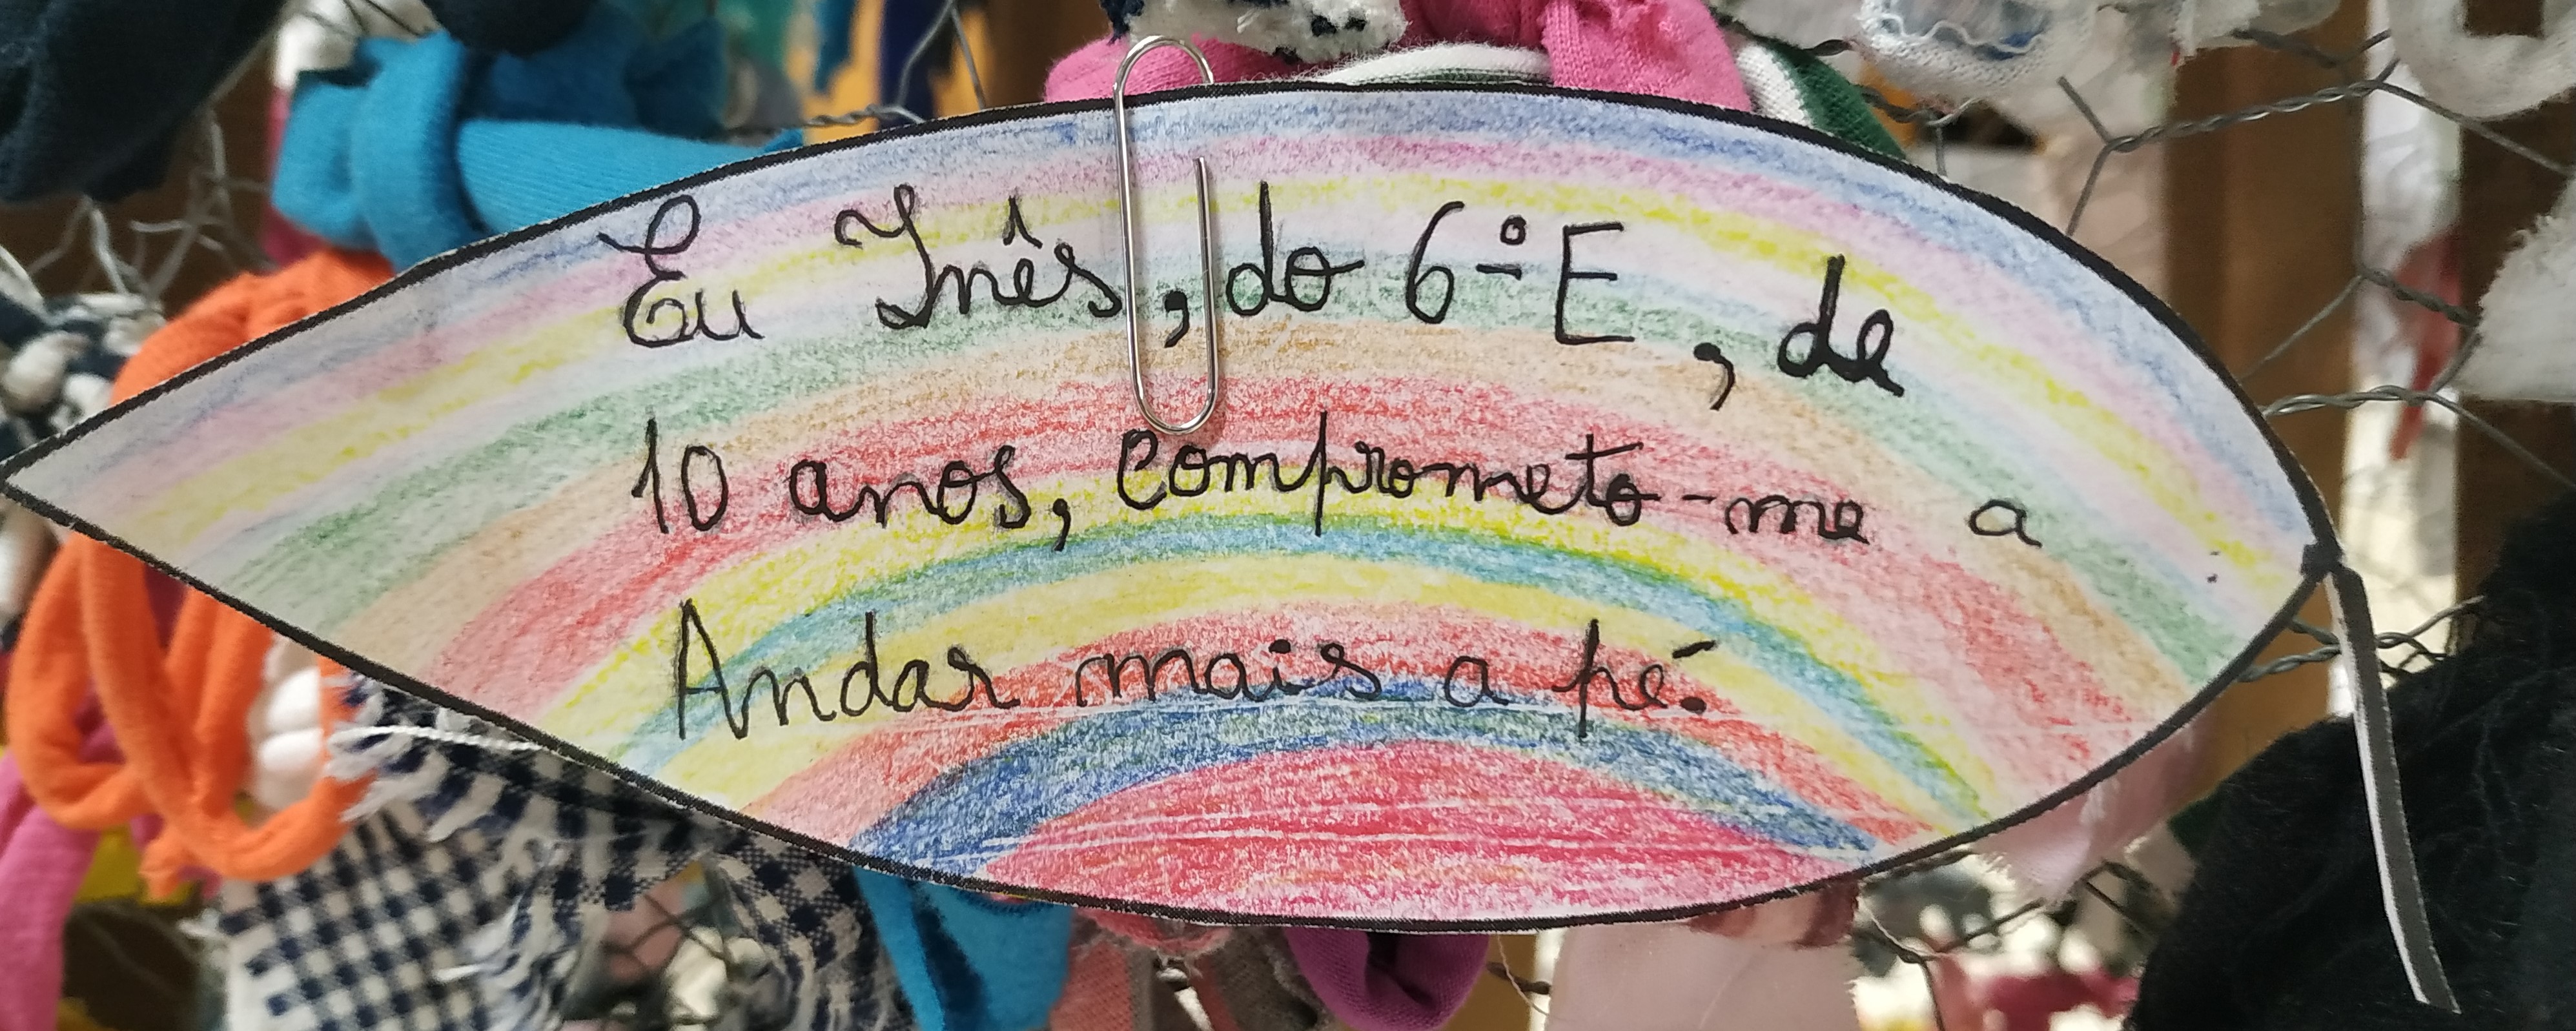 Eu Inês, do 6º E, de
10 anos, comprometo-me a
Andar mais a pé.